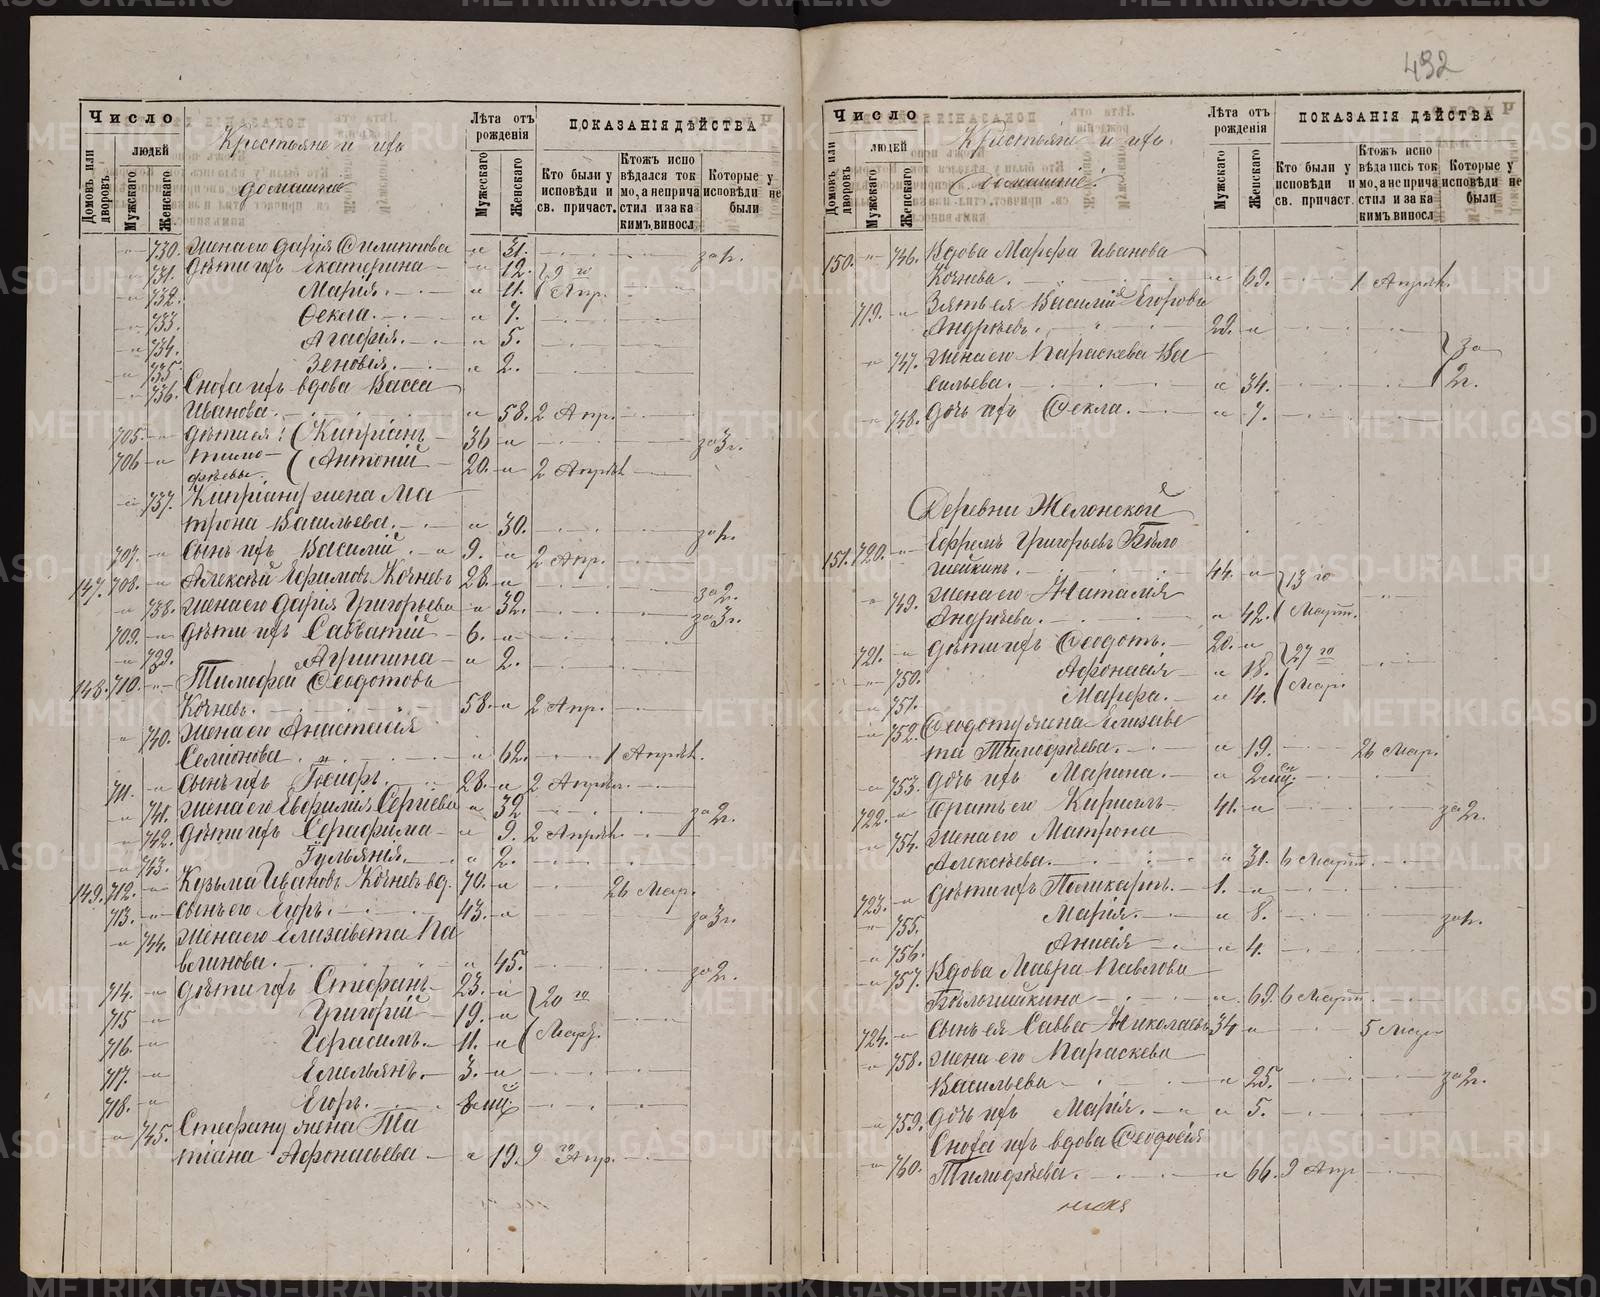 492
Число
Крестьяне и ихъ
домашніе
Лѣта отъ рожденія
ПОКАЗАНІЯ ДѢЙСТВА
людей
Домовъ или дворовъ
Мужскаго
Женскаго
Мужескаго
Женскаго
Кто были у исповѣди и св. причаст.
Ктожъ испо вѣдался ток мо, а не прича стил и за ка кимъ виносл
Которые у исповѣди не были
730. жена его Дарія Филиппова 31. за 1 г.
731. Дѣти ихъ Екатерина 12. 9 го
732. Марія 11. Апр.
733. Ѳекла 7.
734. Агафія 5.
735. Зеновія 2.
736. Сноха ихъ вдова Васса
Иванова 58. 2 Апр.
705. дѣти ея: Кипріанъ 36 за 3 г.
706 Тимо-
фѣевы Антоній 20. 2 Апрѣл
737. Кипріану жена Ма
трона Васильева 30. за 1 г.
707. Сынъ ихъ Василій 9. 2 Апр.
147. 708. Алексѣй Ефимовъ Кочневъ 28. за 2 г.
738. жена его Дарія Григорьева 32. за 3 г.
709. Дѣти ихъ Савватій 6.
739. Агрипина 2.
148. 710. Тимофей Ѳеодотовъ
Кочневъ 58. 2 Апр.
740. жена его Анастасія
Семіонова 62. 1 Апрѣл.
711. Сынъ ихъ Іосифъ 28. 2 Апрѣл.
741. жена его Евфимія Сергіева 32 за 2 г.
742. Дѣти ихъ Серафима 9. 2 Апрѣл.
743. Іульянія 2.
149. 712. Кузьма Ивановъ Кочневъ вд. 70. 26 Мар.
713. Сынъ его Егоръ 43. за 3 г.
744. жена его Елизавета Па
велинова 45. за 2 г.
714. Дѣти ихъ Стефанъ 23. 20 го
715 Григорій 19. Мар.
716. Герасимъ 11.
717. Емельянъ 3.
718. Егоръ 8 мц.
745. Стефану жена Та
тіана Афонасьева 19. 9 го Апр.
Число
Крестьяне и ихъ
домашніе
Лѣта отъ рожденія
ПОКАЗАНІЯ ДѢЙСТВА
людей
Домовъ или дворовъ
Мужскаго
Женскаго
Мужескаго
Женскаго
Кто были у исповѣди и св. причаст.
Ктожъ испо вѣдались ток мо, а не прича стил и за ка кимъ виносл
Которые у исповѣди не были
150. 746. Вдова Марфа Иванова
Кочнева 69. 1 Апрѣл.
719. Зять ея Василій Егоровъ
Андрѣевъ 29.
747. жена его Параскева Ва за
сильева 34. 2 г.
748. Дочь ихъ Ѳекла 7.
Деревни Желонской
151. 720. Ефремъ Григорьевъ Бѣло
шейкинъ 44. 13 го
749. жена его Наталія
Андрѣева 42. Март.
721. Дѣти ихъ Ѳеодотъ 20. 27 го
750. Афонасія 18.
751. Марфа 14. Мар.
752. Ѳеодоту жена Елизаве
та Тимофѣева 19. 26 Мар.
753. Дочь ихъ Марина 2 мц.
722. Братъ его Кириллъ 41. за 2 г.
754. жена его Матрона
Алексѣева 31. 6 Март.
723. Дѣти ихъ Поликарпъ 1.
755. Марія 8. за 1 г.
756. Анисія 4.
757. Вдова Мавра Павлова
Бѣлошейкина 69. 6 Март.
724. Сынъ ея Савва Николаевъ 34 5 Мар
758. жена его Параскева
Васильева 25. за 2 г.
759. Дочь ихъ Марія 5.
760. Сноха ихъ вдова Ѳеодосія
Тимофѣева 66. 9 Апр